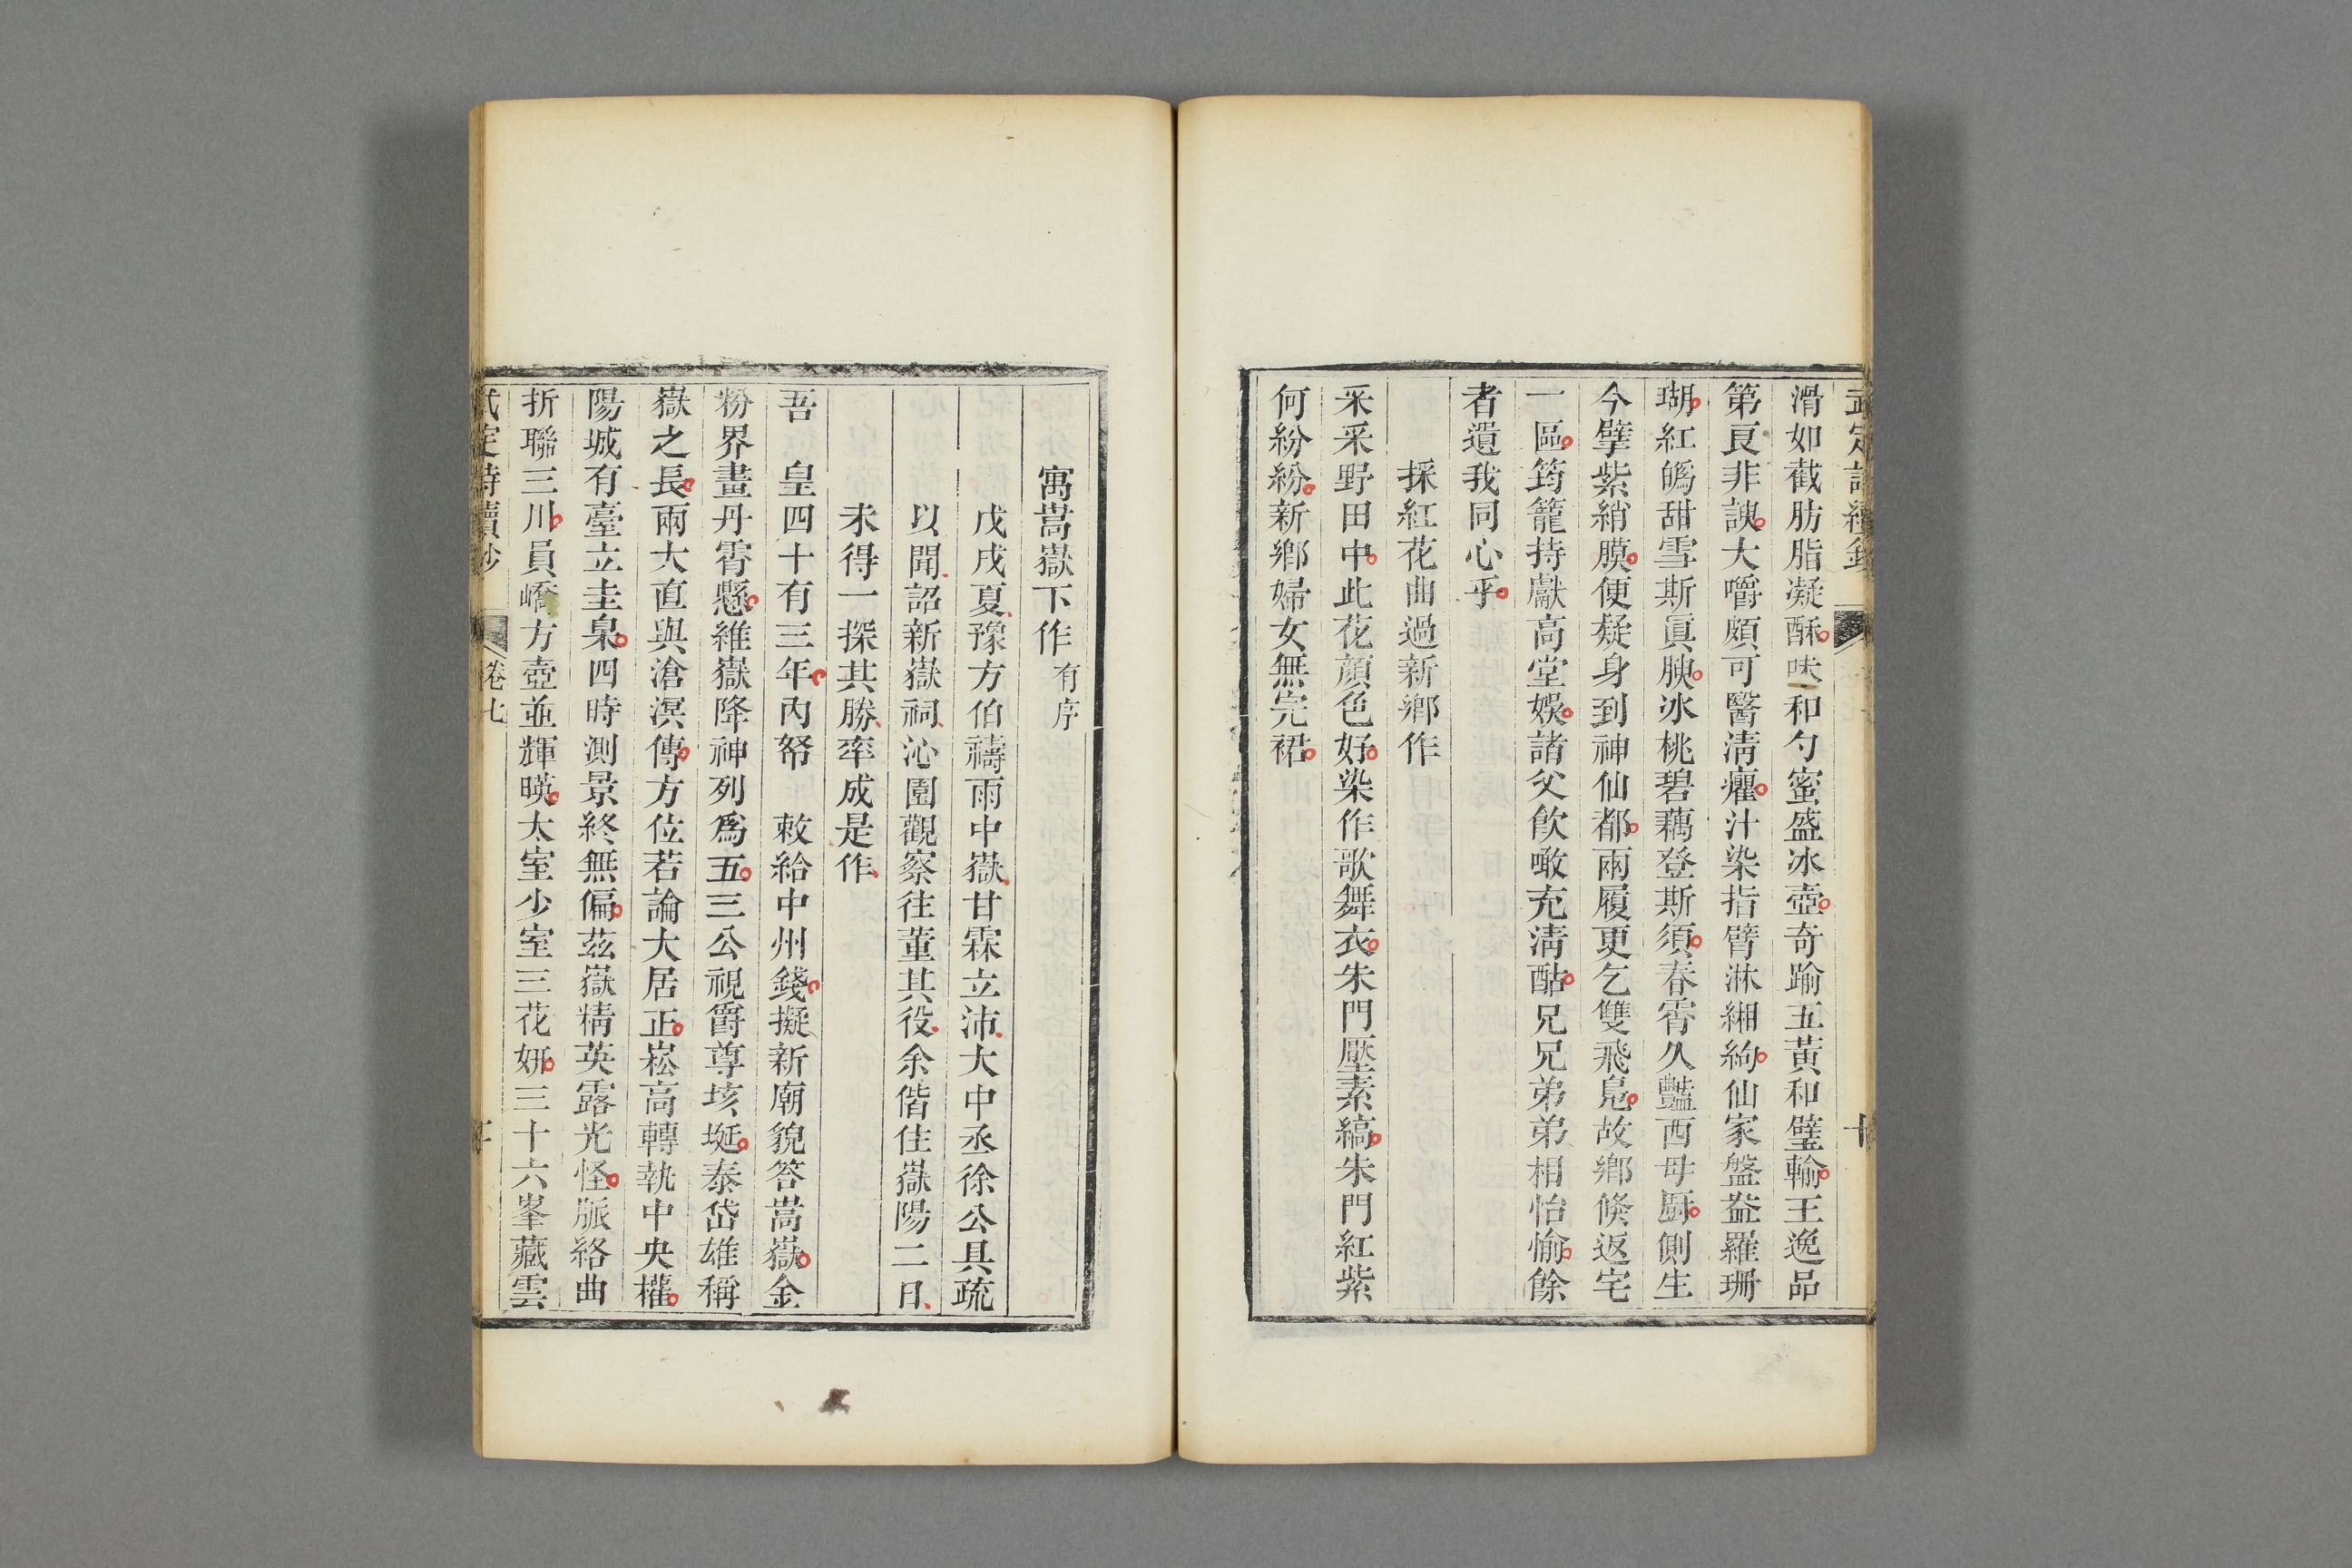 武定詩續鈔
十
滑如截肪脂凝酥味和勺蜜盛冰壺奇踰五黃和璧輸王逸品
第良非諛大嚼頗可醫淸癯汁染指臂淋緗絇仙家盤盎羅珊
瑚紅鷭甜雪斯眞腴冰桃碧藕登斯須春宵久豔西母厨側生
今擘紫綃膜便疑身到神仙都兩履更乞雙飛鳧故鄕倏返宅
一區筠籠持獻高堂娛諸父飮噉充淸酤兄兄弟弟相怡愉餘
者遺我同心乎
採紅花曲過新鄕作
采采野田中此花顏色好染作歌舞衣朱門壓素縞朱門紅紫
何紛紛新鄕婦女無完裙
寓嵩嶽下作有序
戊戌夏豫方伯禱雨中嶽甘霖立沛大中丞徐公具疏
以聞詔新嶽祠沁園觀察往董其役余偕住嶽陽二日
未得一探其勝率成是作
吾　皇四十有三年內帑　敕給中州錢擬新廟貌答嵩嶽金
粉界畫丹霄懸維嶽降神列爲五三公視爵尊垓埏泰岱雄稱
嶽之長兩大直與滄溟傳方位若論大居正崧高轉執中央權
陽城有臺立圭臬四時測景終無偏茲嶽精英露光怪脈絡曲
折聯三川員嶠方壺並輝暎太室少室三花妍三十六峯藏雲
武定詩續鈔
卷七